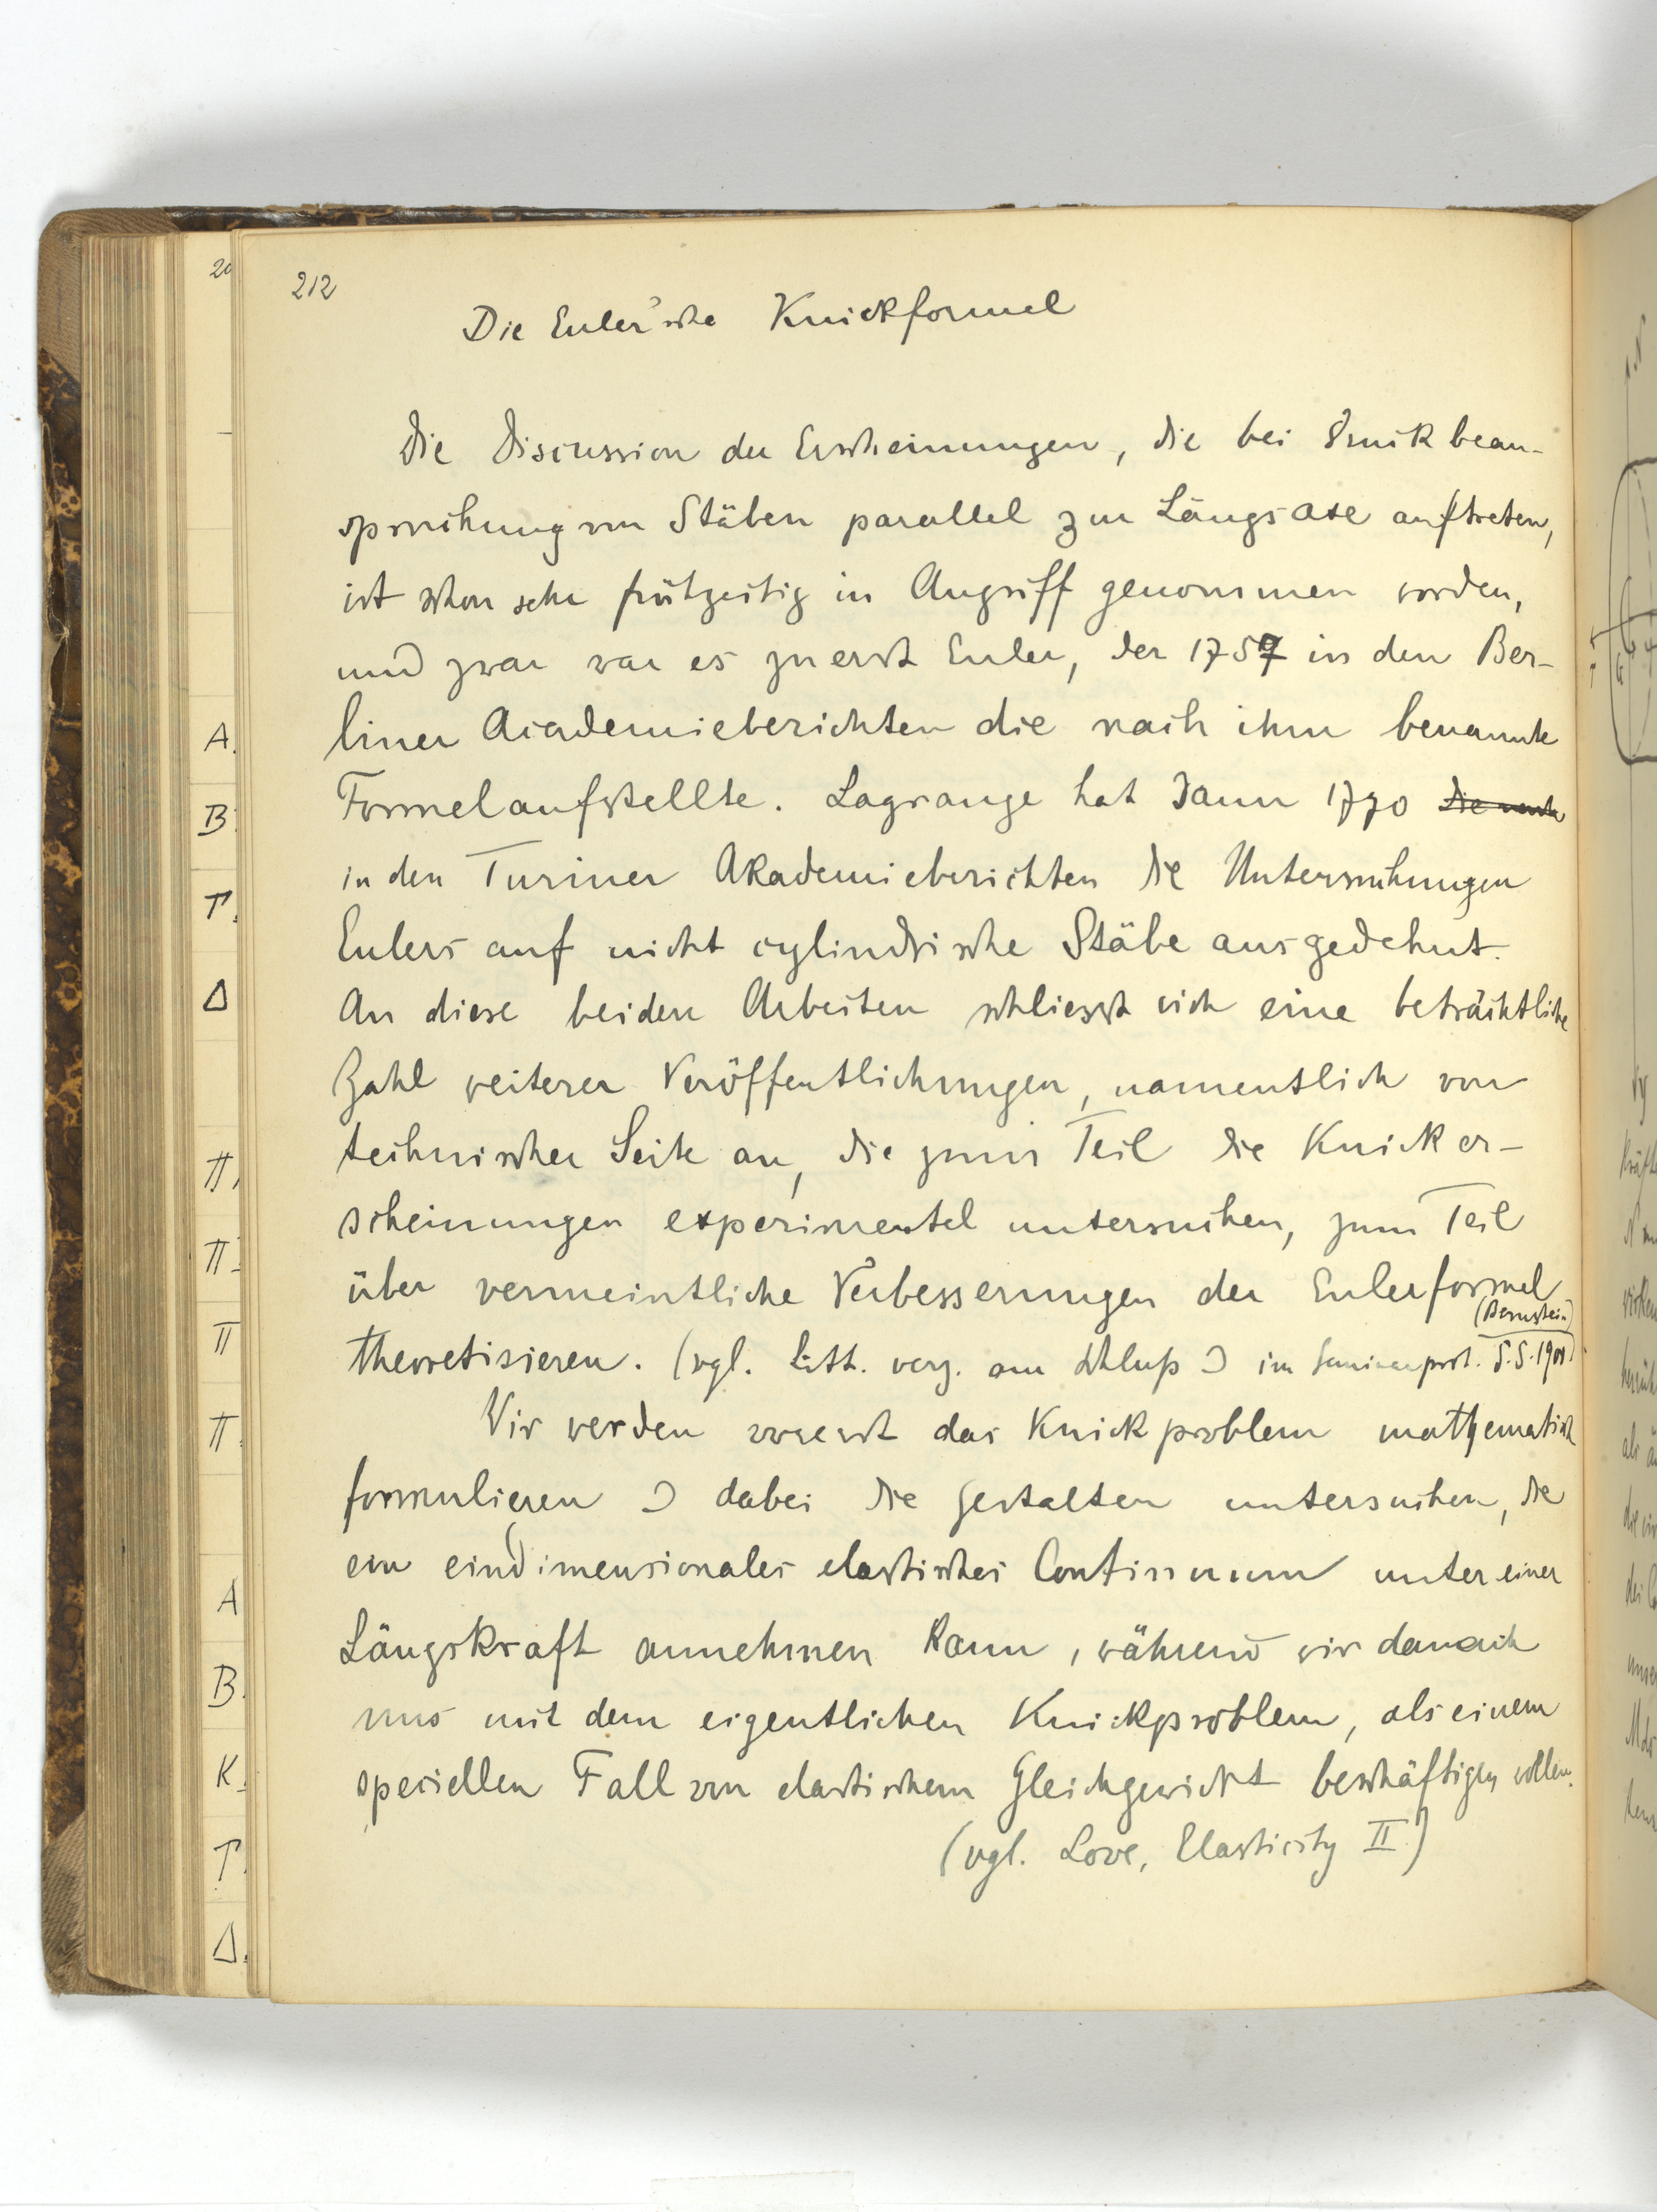 212
Die Euler'sche Knickformel
Die Discussion der Erscheinungen, die bei Druckbean-
spruchung von Stäben parallel zur Längsaxe auftreten,
ist schon sehr frühzeitig in Angriff genommen worden,
und zwar war es zuerst Euler, der 1757 in den Ber-
liner Academieberichten die nach ihm benannte
Formel aufstellte. Lagrange hat dann 1770
in den Turiner Akademieberichten die Untersuchungen
Eulers auf nicht cylindrische Stäbe ausgedehnt.
An diese beiden Arbeiten schliesst sich eine beträchtliche
Zahl weiterer Veröffentlichungen, namentlich von
technischer Seite an, die zum Teil die Knicker-
scheinungen experimentel untersuchen, zum Teil
über vermeintliche Verbesserungen der Eulerformel
(Bernstein)
theoretisieren. (vgl. Litt. verz. am Schluß u im Seminarprot. S.S. 1901)
Wir werden vorerst das Knickproblem mathematisch
formulieren u dabei die Gestalten untersuchen, die
ein eindimensionales elastisches Continuum unter einer
Längskraft annehmen kann, während wir danach
uns mit dem eigentlichen Knickproblem, als einem
speciellen Fall von elastischem Gleichgewicht beschäftigen wollen.
(vgl. Love, Elasticity II)
A.
B
Γ.
Δ
Π
Π
Π
Π
A
B.
K
Γ
Δ.